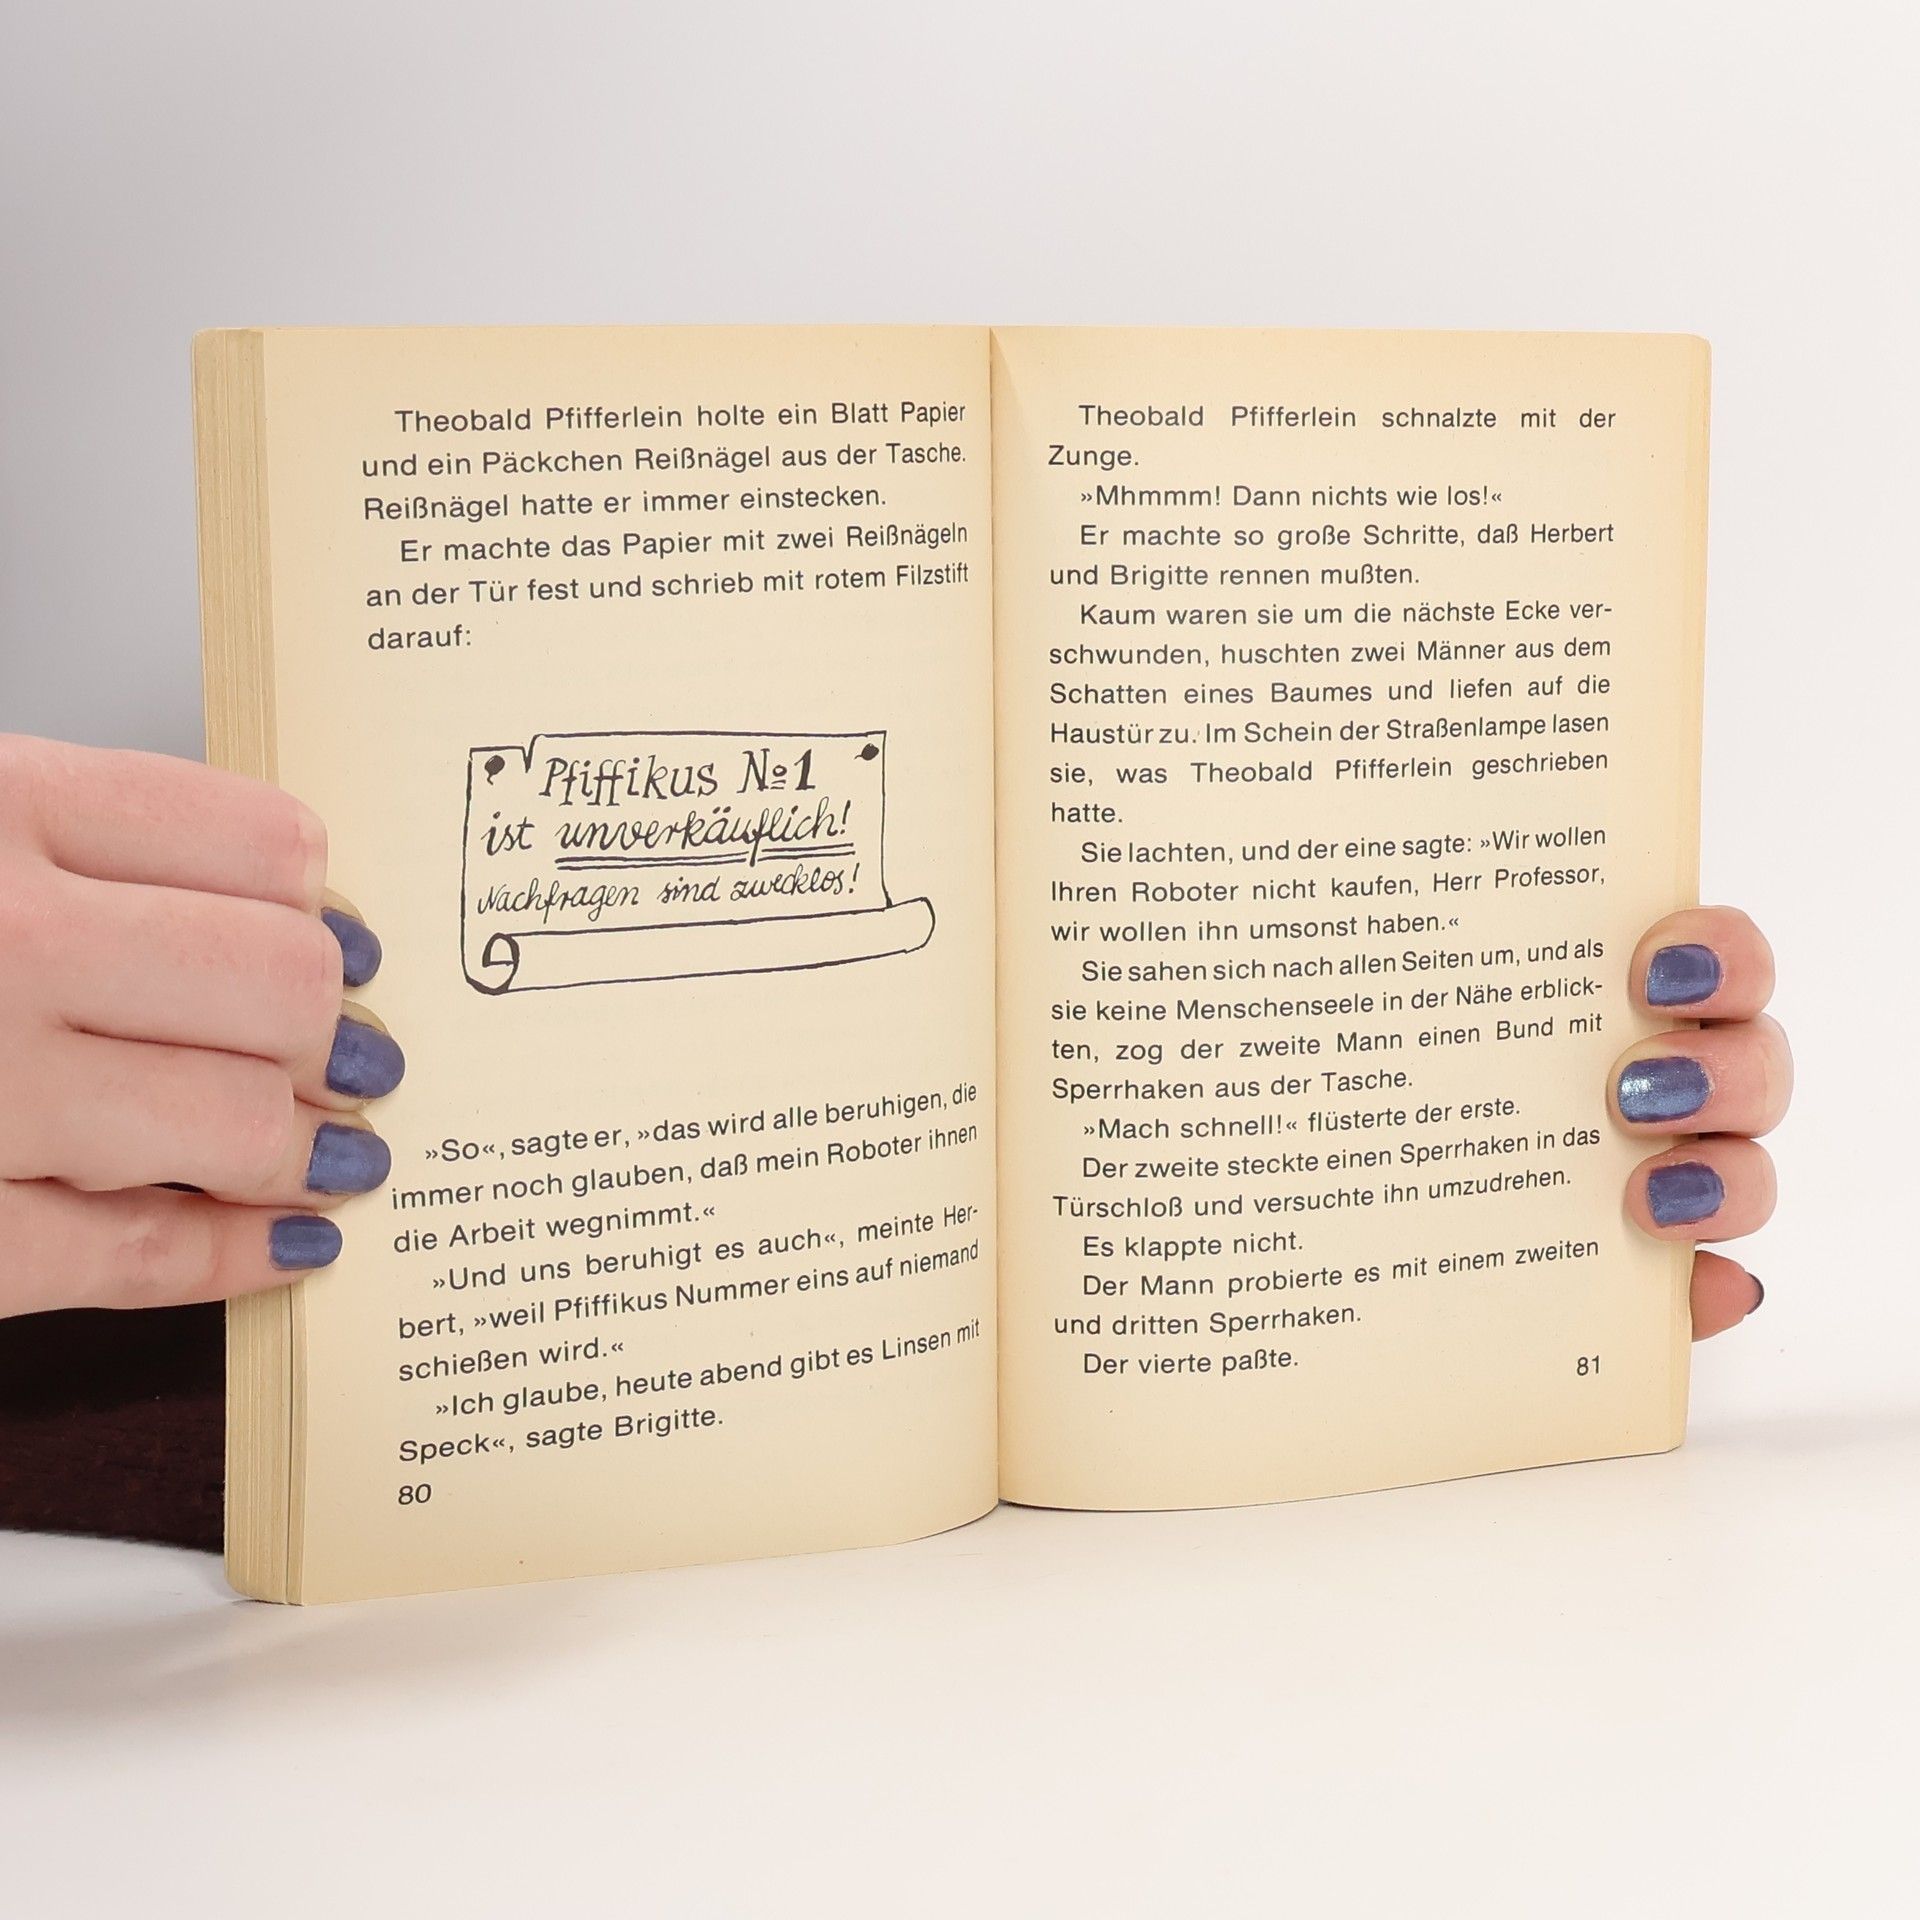 Theobald Pfifferlein holte ein Blatt Papier
und ein Päckchen Reißnägel aus der Tasche.
Reißnägel hatte er immer einstecken.
Er machte das Papier mit zwei Reißnägeln
an der Tür fest und schrieb mit rotem Filzstift
darauf:
Pfiffikus No 1
ist unverkäuflich!
Nachfragen sind zwecklos!
»So«, sagte er, »das wird alle beruhigen, die
immer noch glauben, daß mein Roboter ihnen
die Arbeit wegnimmt.«
»Und uns beruhigt es auch«, meinte Her-
bert, »weil Pfiffikus Nummer eins auf niemand
schießen wird.«
»Ich glaube, heute abend gibt es Linsen mit
Speck«, sagte Brigitte.
80
Theobald Pfifferlein schnalzte mit der
Zunge.
»Mhmmm! Dann nichts wie los!«
Er machte so große Schritte, daß Herbert
und Brigitte rennen mußten.
Kaum waren sie um die nächste Ecke ver-
schwunden, huschten zwei Männer aus dem
Schatten eines Baumes und liefen auf die
Haustür zu. Im Schein der Straßenlampe lasen
sie, was Theobald Pfifferlein geschrieben
hatte.
Sie lachten, und der eine sagte: »Wir wollen
Ihren Roboter nicht kaufen, Herr Professor,
wir wollen ihn umsonst haben.«
Sie sahen sich nach allen Seiten um, und als
sie keine Menschenseele in der Nähe erblick-
ten, zog der zweite Mann einen Bund mit
Sperrhaken aus der Tasche.
»Mach schnell!« flüsterte der erste.
Der zweite steckte einen Sperrhaken in das
Türschloß und versuchte ihn umzudrehen.
Es klappte nicht.
Der Mann probierte es mit einem zweiten
und dritten Sperrhaken.
Der vierte paßte.
81